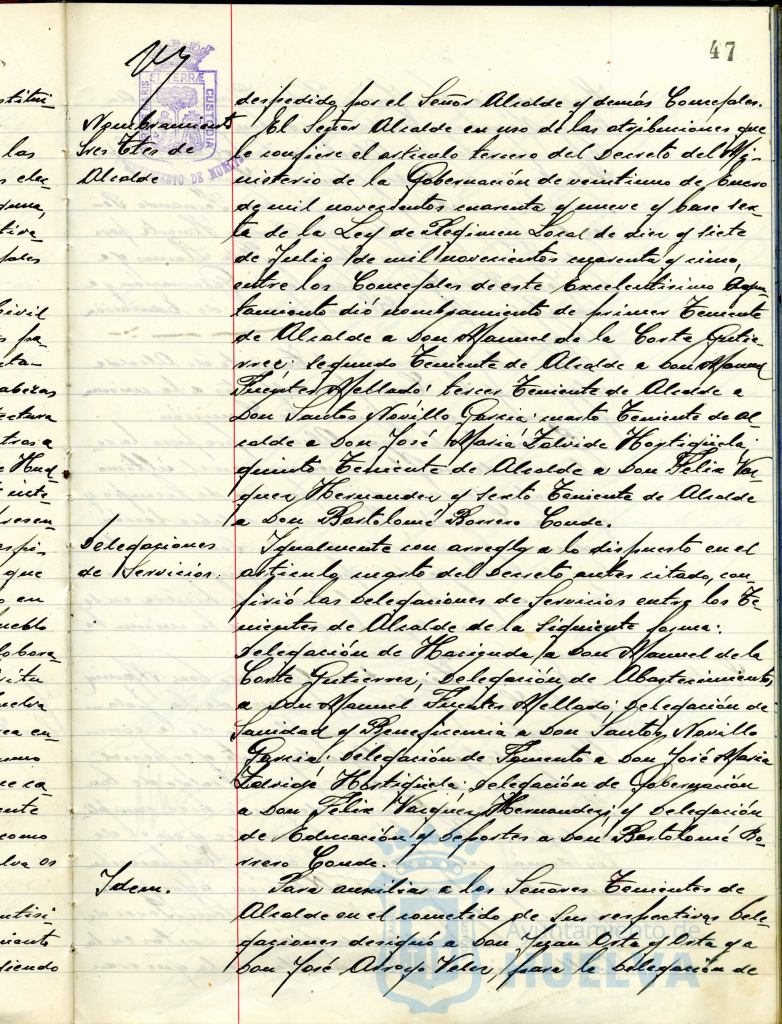 47
despedido por el Señor Alcalde y demás Concejales.
Nombramiento
tres Ttes de
Alcalde
El Señor Alcalde en uso de las atribuciones que
le confiere el artículo tercero del Decreto del Mi-
nisterio de la Gobernación de veintiuno de Enero
de mil novecientos cuarenta y nueve y base sex-
ta de la Ley de Régimen Local de diez y siete
de Julio de mil novecientos cuarenta y cinco,
entre los Concejales de este Excelentísimo Ayun-
tamiento dió nombramiento de primer Teniente
de Alcalde a Don Manuel de la Corte Gutie-
rrez; segundo Teniente de Alcalde a Don Manuel
Fuentes Mellado; tercer Teniente de Alcalde a
Don Santos Novillo Garcia; cuarto Teniente de Al-
calde a Don José Maria Zalvide Hortigüela;
quinto Teniente de Alcalde a Don Felix Vaz-
quez Hernandez y sexto Teniente de Alcalde
a Don Bartolomé Borrero Conde.
Delegaciones
de Servicios.
Igualmente con arreglo a lo dispuesto en el
artículo cuarto del Decreto antes citado, con-
firió las Delegaciones de Servicios entre los Te-
nientes de Alcalde de la siguiente forma:
Delegación de Hacienda, a Don Manuel de la
Corte Gutierrez; Delegación de Abastecimientos
a Don Manuel Fuentes Mellado; Delegación de
Sanidad y Beneficencia a Don Santos Novillo
Garcia; Delegación de Fomento a Don José Maria
Zalvide Hortigüela; Delegación de Gobernación
a Don Felix Vazquez Hernandez; y Delegación
de Educación y Deportes a Don Bartolomé Bo-
rrero Conde.
Idem.
Para auxiliar a los Señores Tenientes de
Alcalde en el cometido de sus respectivas Dele-
gaciones designó a Don Juan Orta y Orta y a
Don José Arroyo Velez, para la Delegación de
Ayuntamiento de
HUELVA